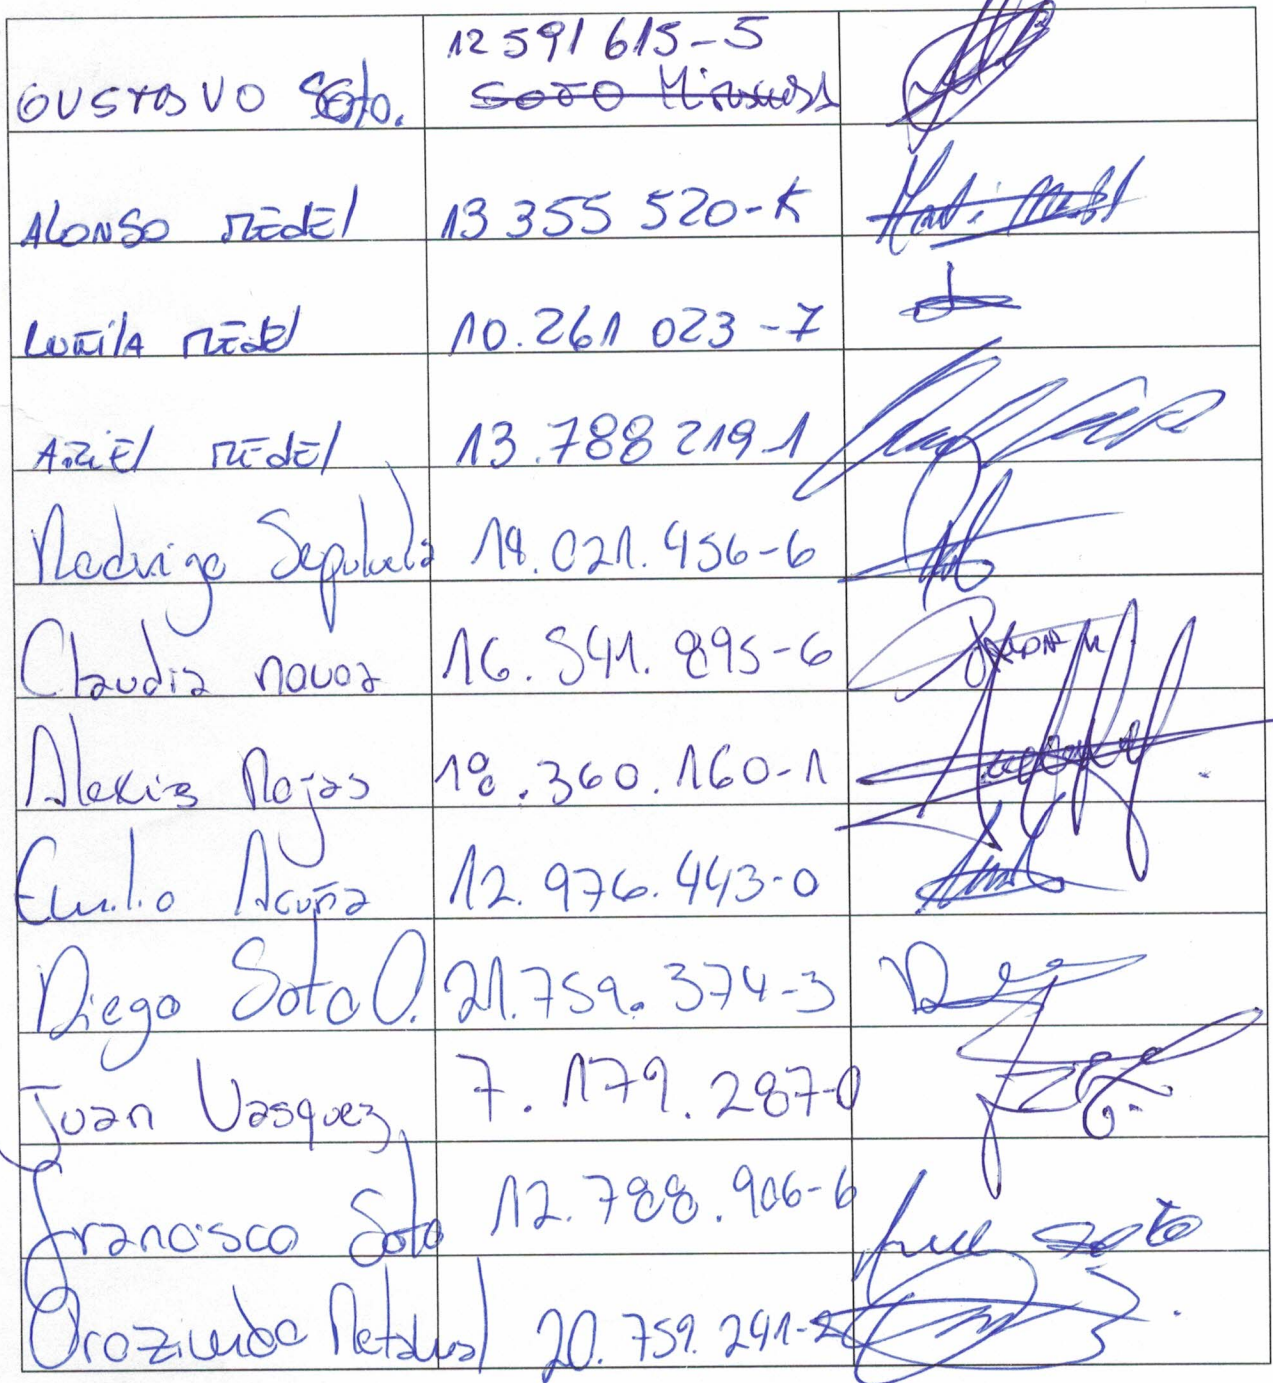 12 591 615-5
GUSTAVO Soto.
Alonso MEdEl 13 355 520-K
LuCilA MEdEl 10.261 023-7
ARiEl MEdEl 13.788 219-1
Rodrigo Sepulveda 14.021.456-6
Claudia novoa 16.541.895-6
Alexis Rojas 18.360.160-1
Emilio Acuña 12.976.443-0
Diego Soto O. 21.759.374-3
Juan Vasquez 7.179.287-0
Francisco Soto 12.788.906-6
Orozimbo Retamal 20.759.241-2